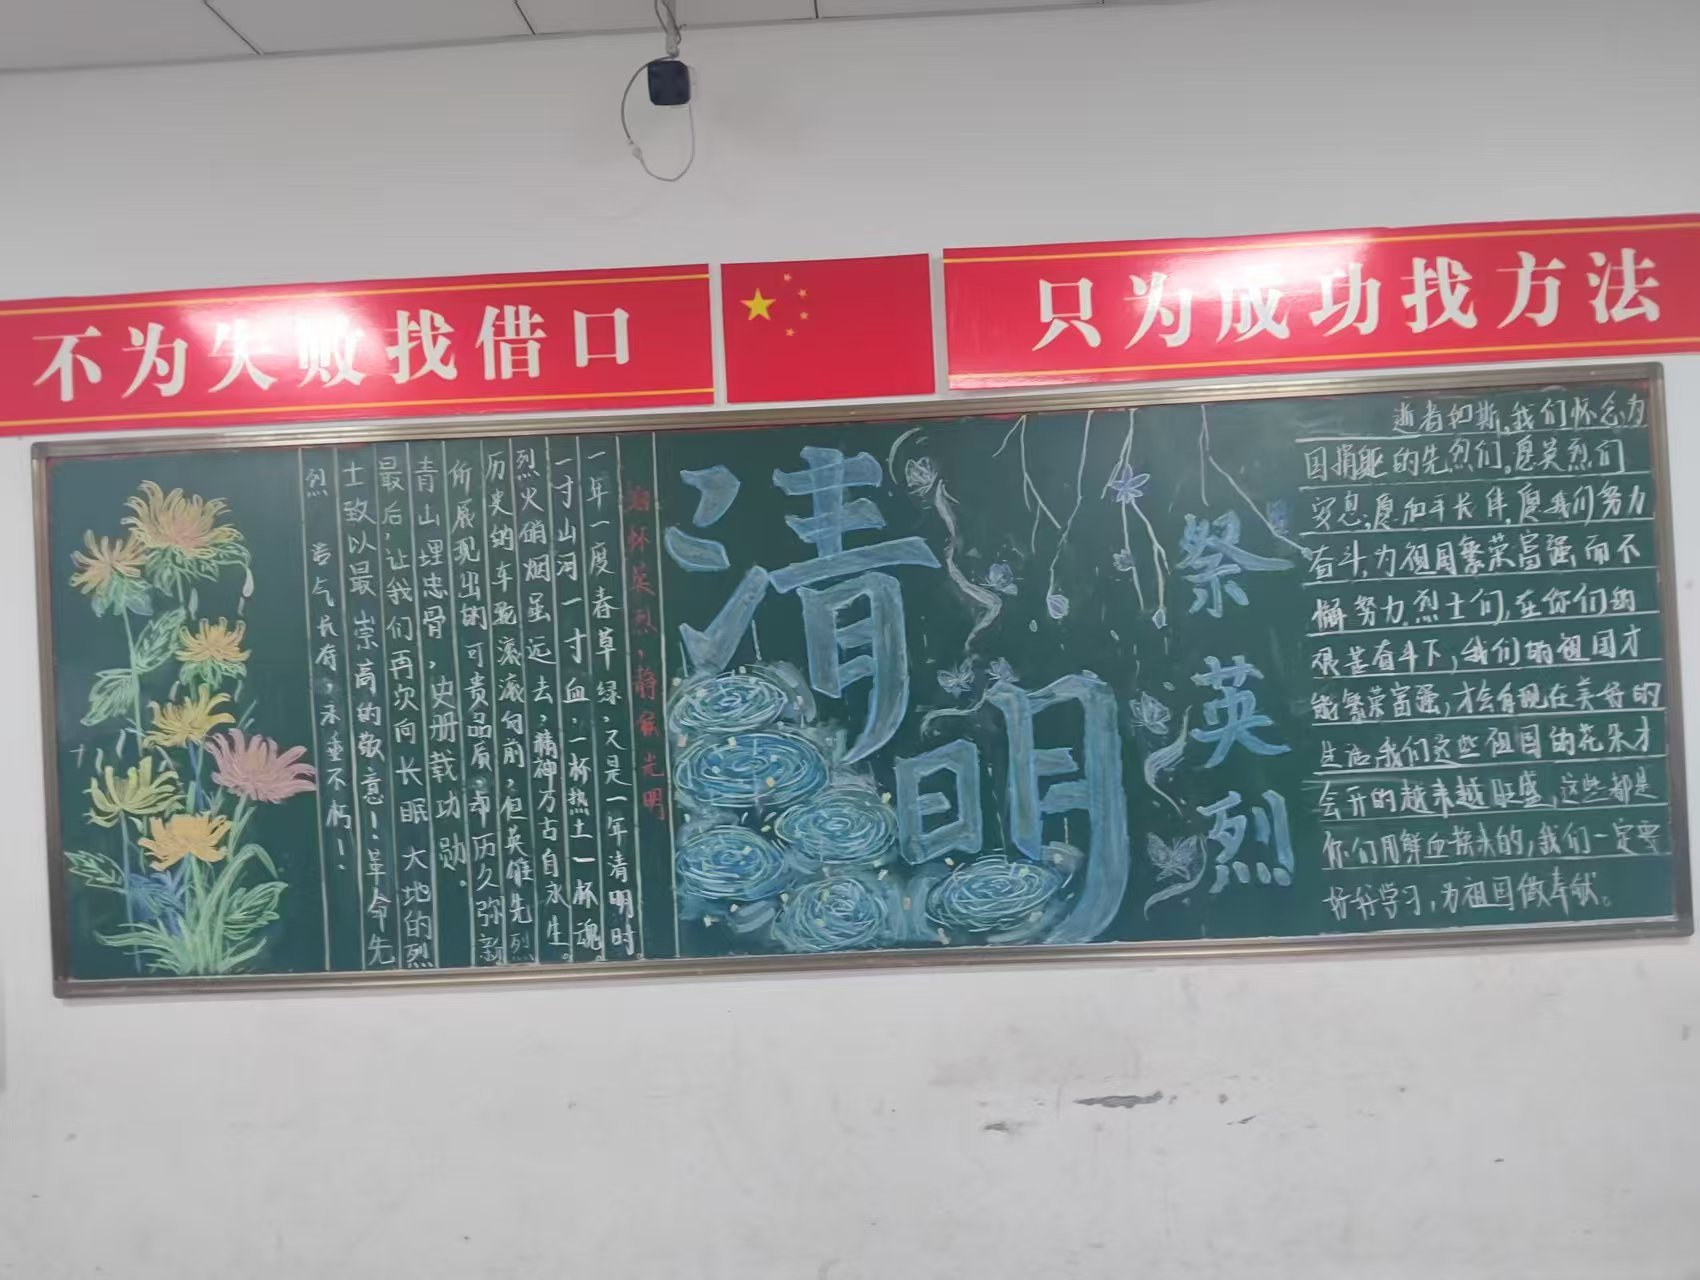 不为失败找借口
只为成功找方法
缅怀英烈，静候光明
一年一度春草绿，又是一年清明时。
一寸山河一寸血，一抔热土一抔魂。
烈火硝烟虽远去，精神万古自永生。
历史的车轮滚滚向前，但英雄先烈
所展现出的可贵品质，却历久弥新
青山埋忠骨，史册载功勋。
最后，让我们再次向长眠大地的烈
士致以最崇高的敬意！革命先
烈 浩气长存，永垂不朽！
清明
祭英烈
逝者如斯，我们怀念为
国捐躯的先烈们，愿英烈们
安息，愿和平长伴，愿我们努力
奋斗，为祖国繁荣富强而不
懈努力，烈士们，在你们的
艰苦奋斗下，我们的祖国才
能繁荣富强，才会有现在美好的
生活，我们这些祖国的花朵才
会开的越来越旺盛，这些都是
你们用鲜血换来的，我们一定要
好好学习，为祖国做奉献。